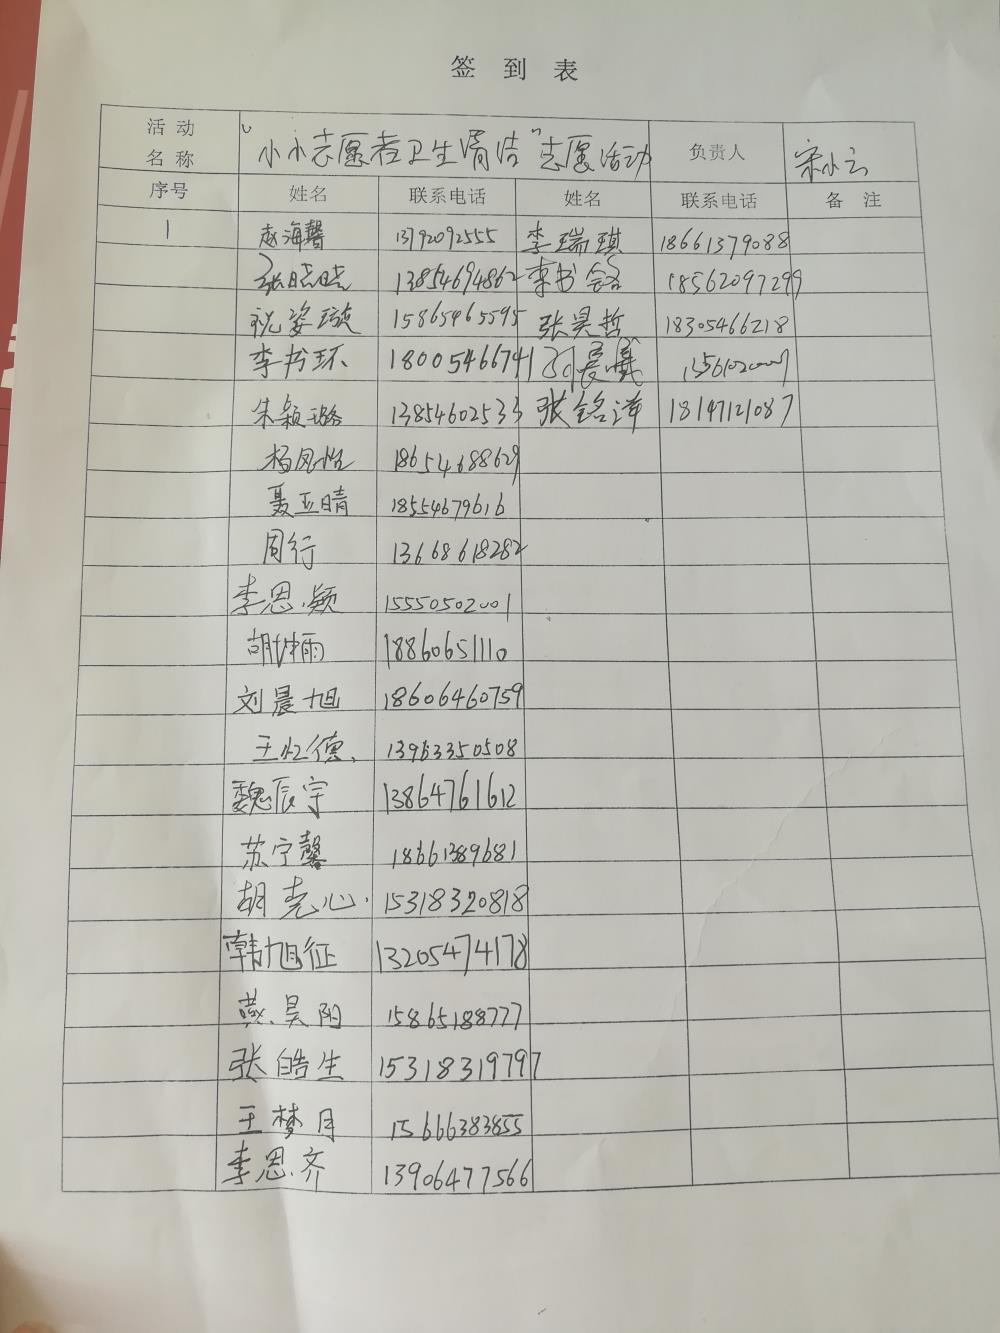 签 到 表
活 动 名 称 “小小志愿者卫生清洁”志愿活动 负责人 宋小云
序号 姓名 联系电话 姓名 联系电话 备 注
1 赵海馨 13792092555 李瑞琪 18661379088
张晓晓 13854694862 李书铭 18562097299
祝姿璇 15865465595 张昊哲 18305466218
李书环 18005466741 刘晨曦
朱颖璐 13854602533 张铭洋 18147121087
杨凤怡 18654688629
聂亚晴 18554679616
周行 13668618282
李恩颖 15550502001
胡坤雨 18860651110
刘晨旭 18606460759
王忆德 13963350508
魏辰宇 13864761612
苏宁馨 18661389681
胡尧心 15318320818
韩旭征 13205474178
燕昊阳 15865188777
张皓生 15318319797
王梦月 15666383855
李恩齐 13906477566